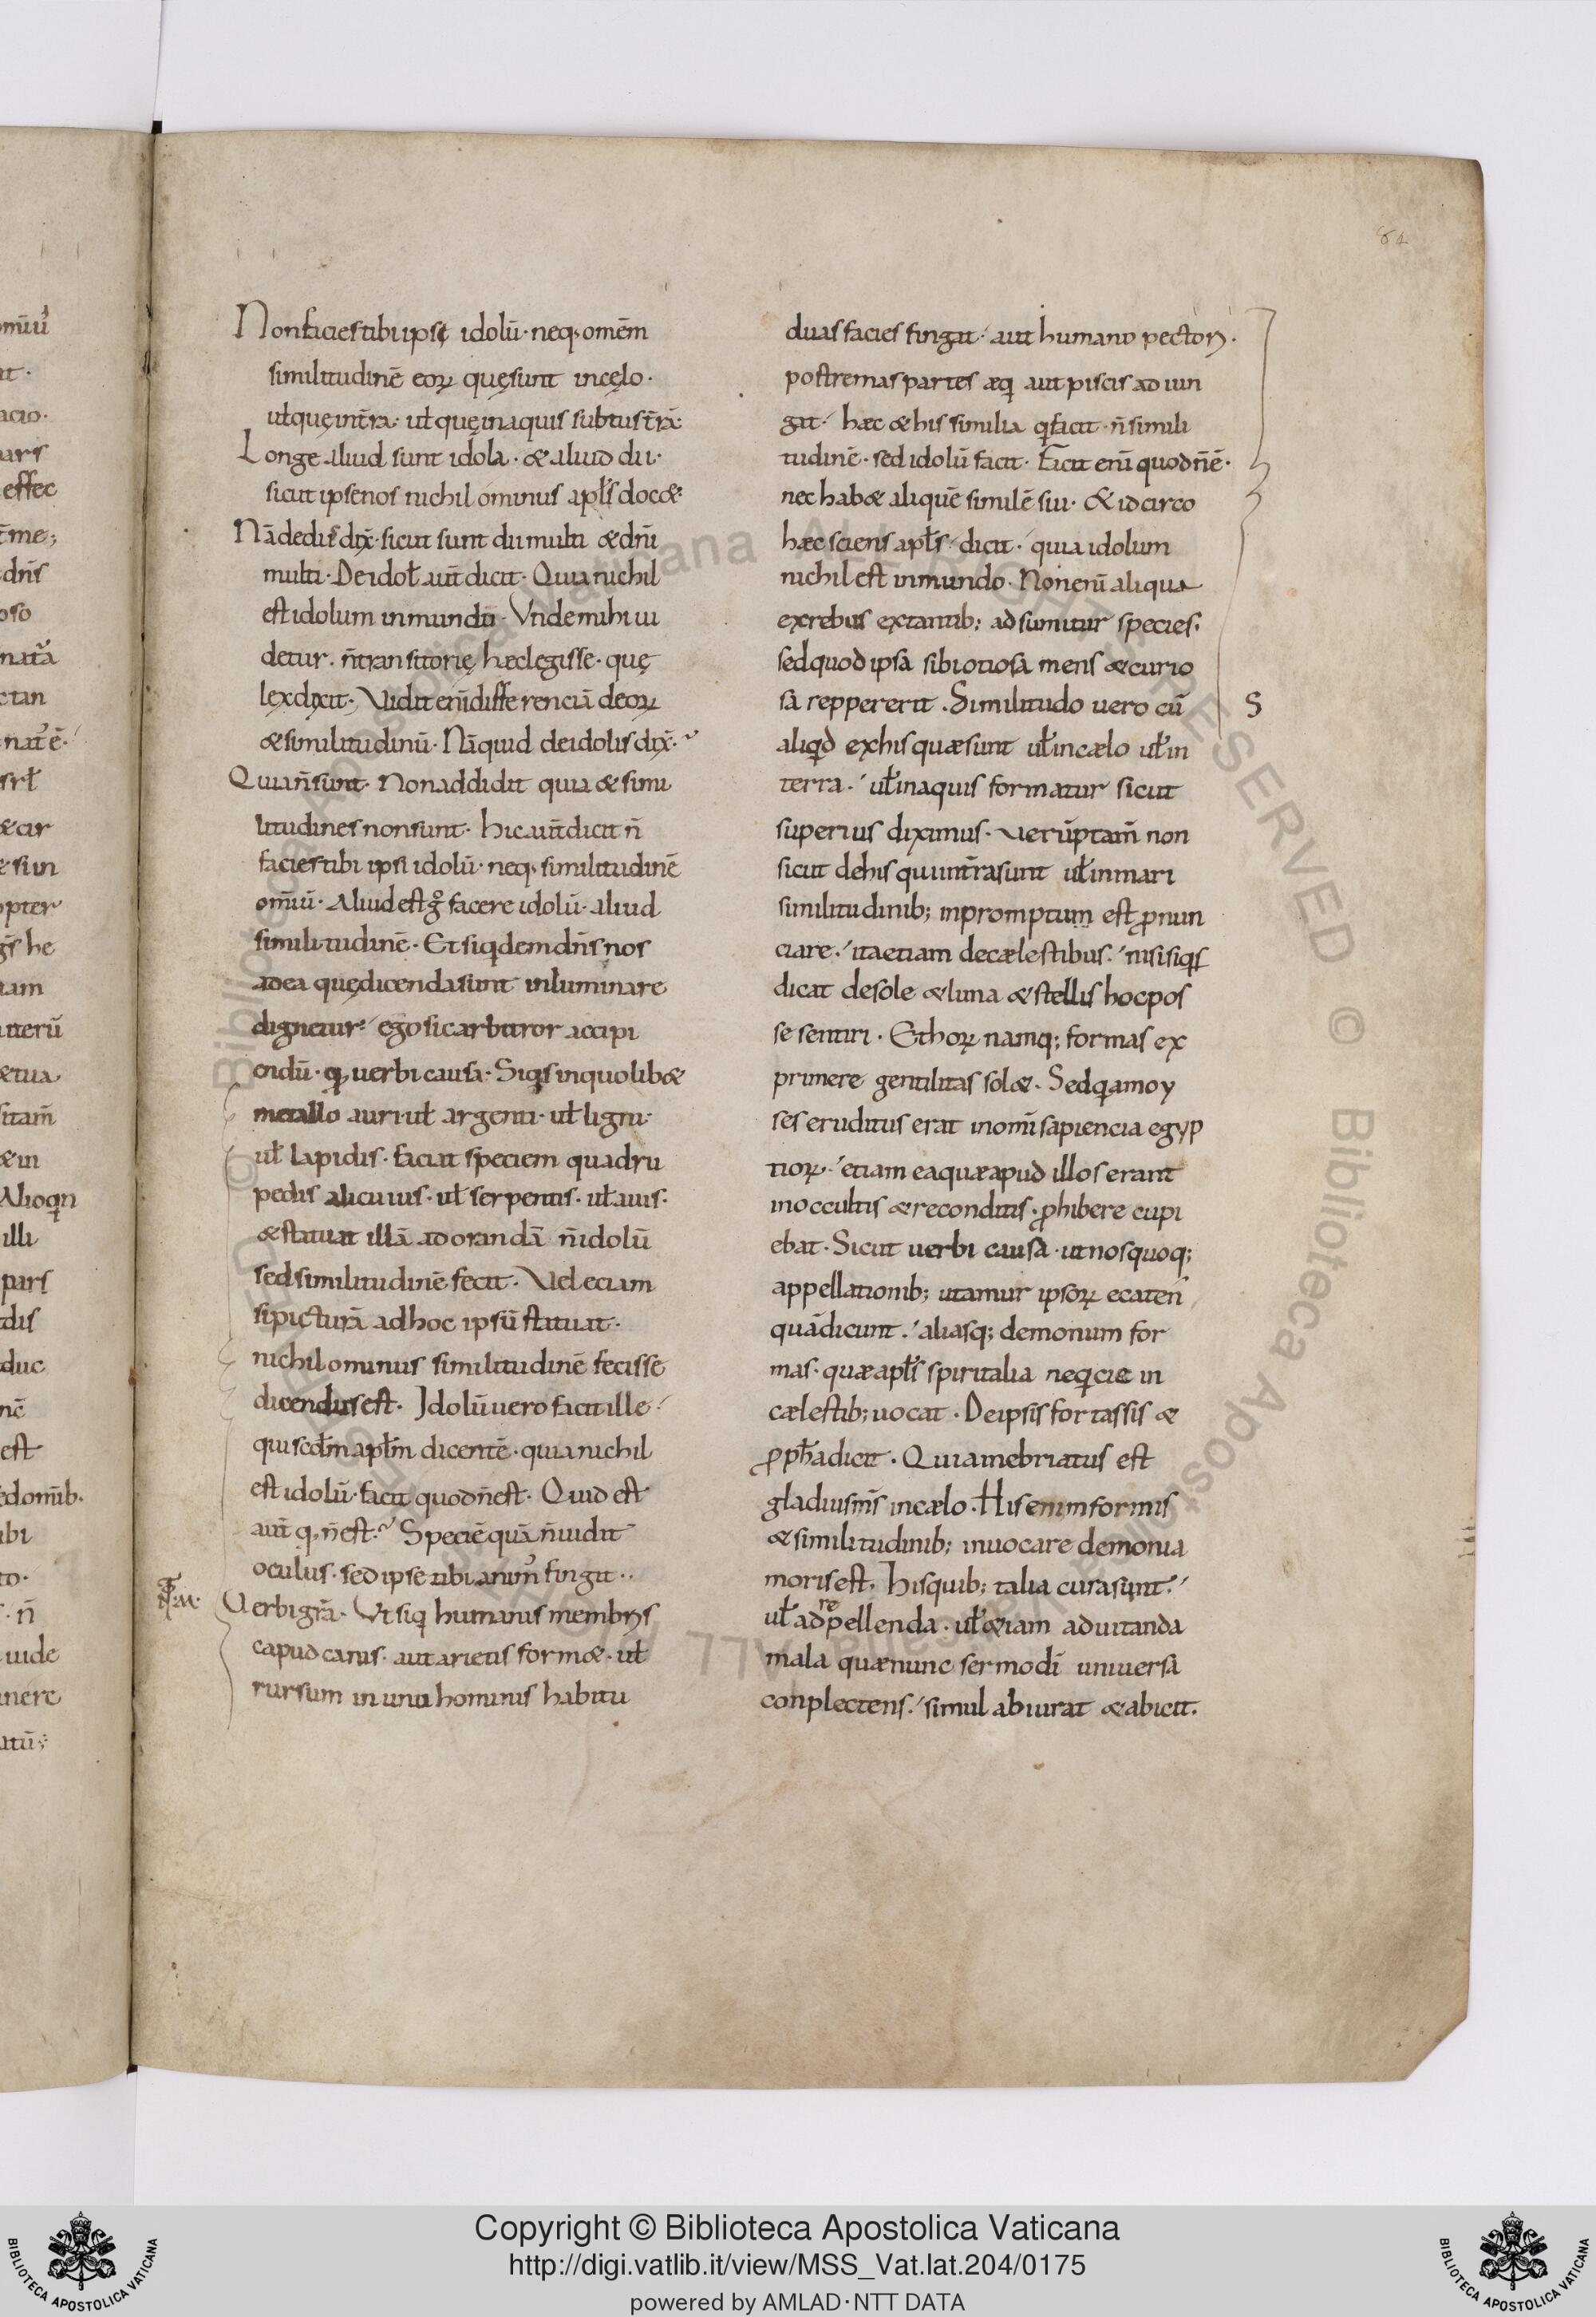 84
Non facies tibi ipse idolū· neq; omēm
similitudinē eoꝝ quę sunt in cęlo·
uł quę in t̄ra· uł quę in aquis subtus t̄rā·
Longe aliud sunt idola· & aliud dii·
sicut ipse nos nichilominus apłs doc&·
Nā de diis dix̄· sicut sunt dii multi & dn̄i
multi· De idoł aut̄ dicit· Quia nichil
est idolum in mundū· Vnde mihi ui
detur· n̄ transitorię hęc legisse· quę
lex dixit· Vidit eni̅ differenciā deoꝝ
& similitudinū· Nā quid de idolis dix̄·
Quia n̄ sunt· Non addidit quia & simi
litudines non sunt· hic aut̄ dicit n̄
facies tibi ipsi idolū· neq; similitudinē
omiū· Aliud est g̊ facere idolū· aliud
similitudinē· Et siqdem dn̄s nos
ad ea quę dicenda sunt inluminare
dignetur· ego sic arbitror accipi
endū· q, uerbi causa· Siqs in quolib&
metallo auri· uł argenti· uł ligni·
uł lapidis· faciat speciem quadru
pedis alicuius· uł serpentis· uł auis·
& statuat illā adorandā n̄ idolū
sed similitudinē fecit· Vel eciam
si picturā ad hoc ipsū statuat·
nichilominus similitudinē fecisse
dicendus est· Idolū uero facit ille·
qui scd̄m apłm dicentē· quia nichil
est idolū· facit quod n̄ est· Quid est
aut̄ q, n̄ est· Speciē quā n̄ uidit
oculus· sed ipse tibi anim᾽ fingit··
Uerbi gr̄a· Vt siq humanis membris
capud canis· aut arietis form&· uł
rursum in unu hominis habitu
duas facies fingat· aut humano pectori·
postremas partes æq aut piscis adiun
gat· hæc & his similia q facit· n̄ simili
tudinē· sed idolū facit· Facit eni̅ quod n̄ ē·
nec hab& aliquē similē sui· & idcirco
hæc sciens apłs· dicit· quia idolum
nichil est in mundo· Non eni̅ aliqua
ex rebus extantib; adsumitur species·
sed quod ipsa sibi otiosa mens & curio
sa reppererit· Similitudo uero cū
S
aliqd ex his quæ sunt uł in cælo uł in
terra· uł in aquis formatur sicut
superius diximus· Uerūptam̄ non
sicut de his qui in t̄ra sunt uł in mari
similitudinib; in promptum est ꝓnun
ciare· ita etiam de cælestibus· nisi siqs
dicat de sole & luna & stellis hoc pos
se sentiri· Et hoꝝ namq; formas ex
primere gentilitas sol&· Sed q a moy
ses eruditus erat in omi̅ sapiencia egyp
tioꝝ· etiam ea quæ apud illos erant
in occultis & reconditis· ꝓhibere cupi
ebat· Sicut uerbi causa· ut nos quoq;
appellationib; utamur ipsoꝝ ecaten
quā dicunt· aliasq; demonum for
mas· quæ apłs spiritalia neqcie in
cælestib; uocat· De ipsis fortassis &
ꝓph̄a dicit· Quia inebriatus est
gladius m̄s in cælo· His enim formis
& similitudinib; inuocare demonia
moris est· hisquib; talia cura sunt·
uł ad repellenda· uł &iam ad uitanda
mala quæ nunc sermo di̅ uniuersa
conplectens· simul abiurat & abicit·
Copyright © Biblioteca Apostolica Vaticana
http://digi.vatlib.it/view/MSS_Vat.lat.204/0175
powered by AMLAD·NTT DATA
BIBLIOTECA APOSTOLICA VATICANA
BIBLIOTECA APOSTOLICA VATICANA